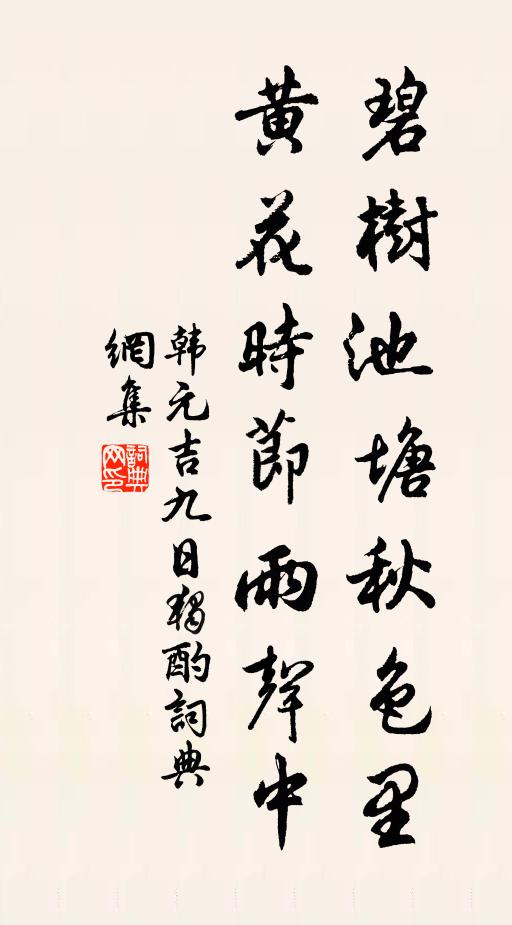 碧樹池塘秋色里
黃花時節雨聲中
韩元吉九日獨酌詞典
網集
詞典網印